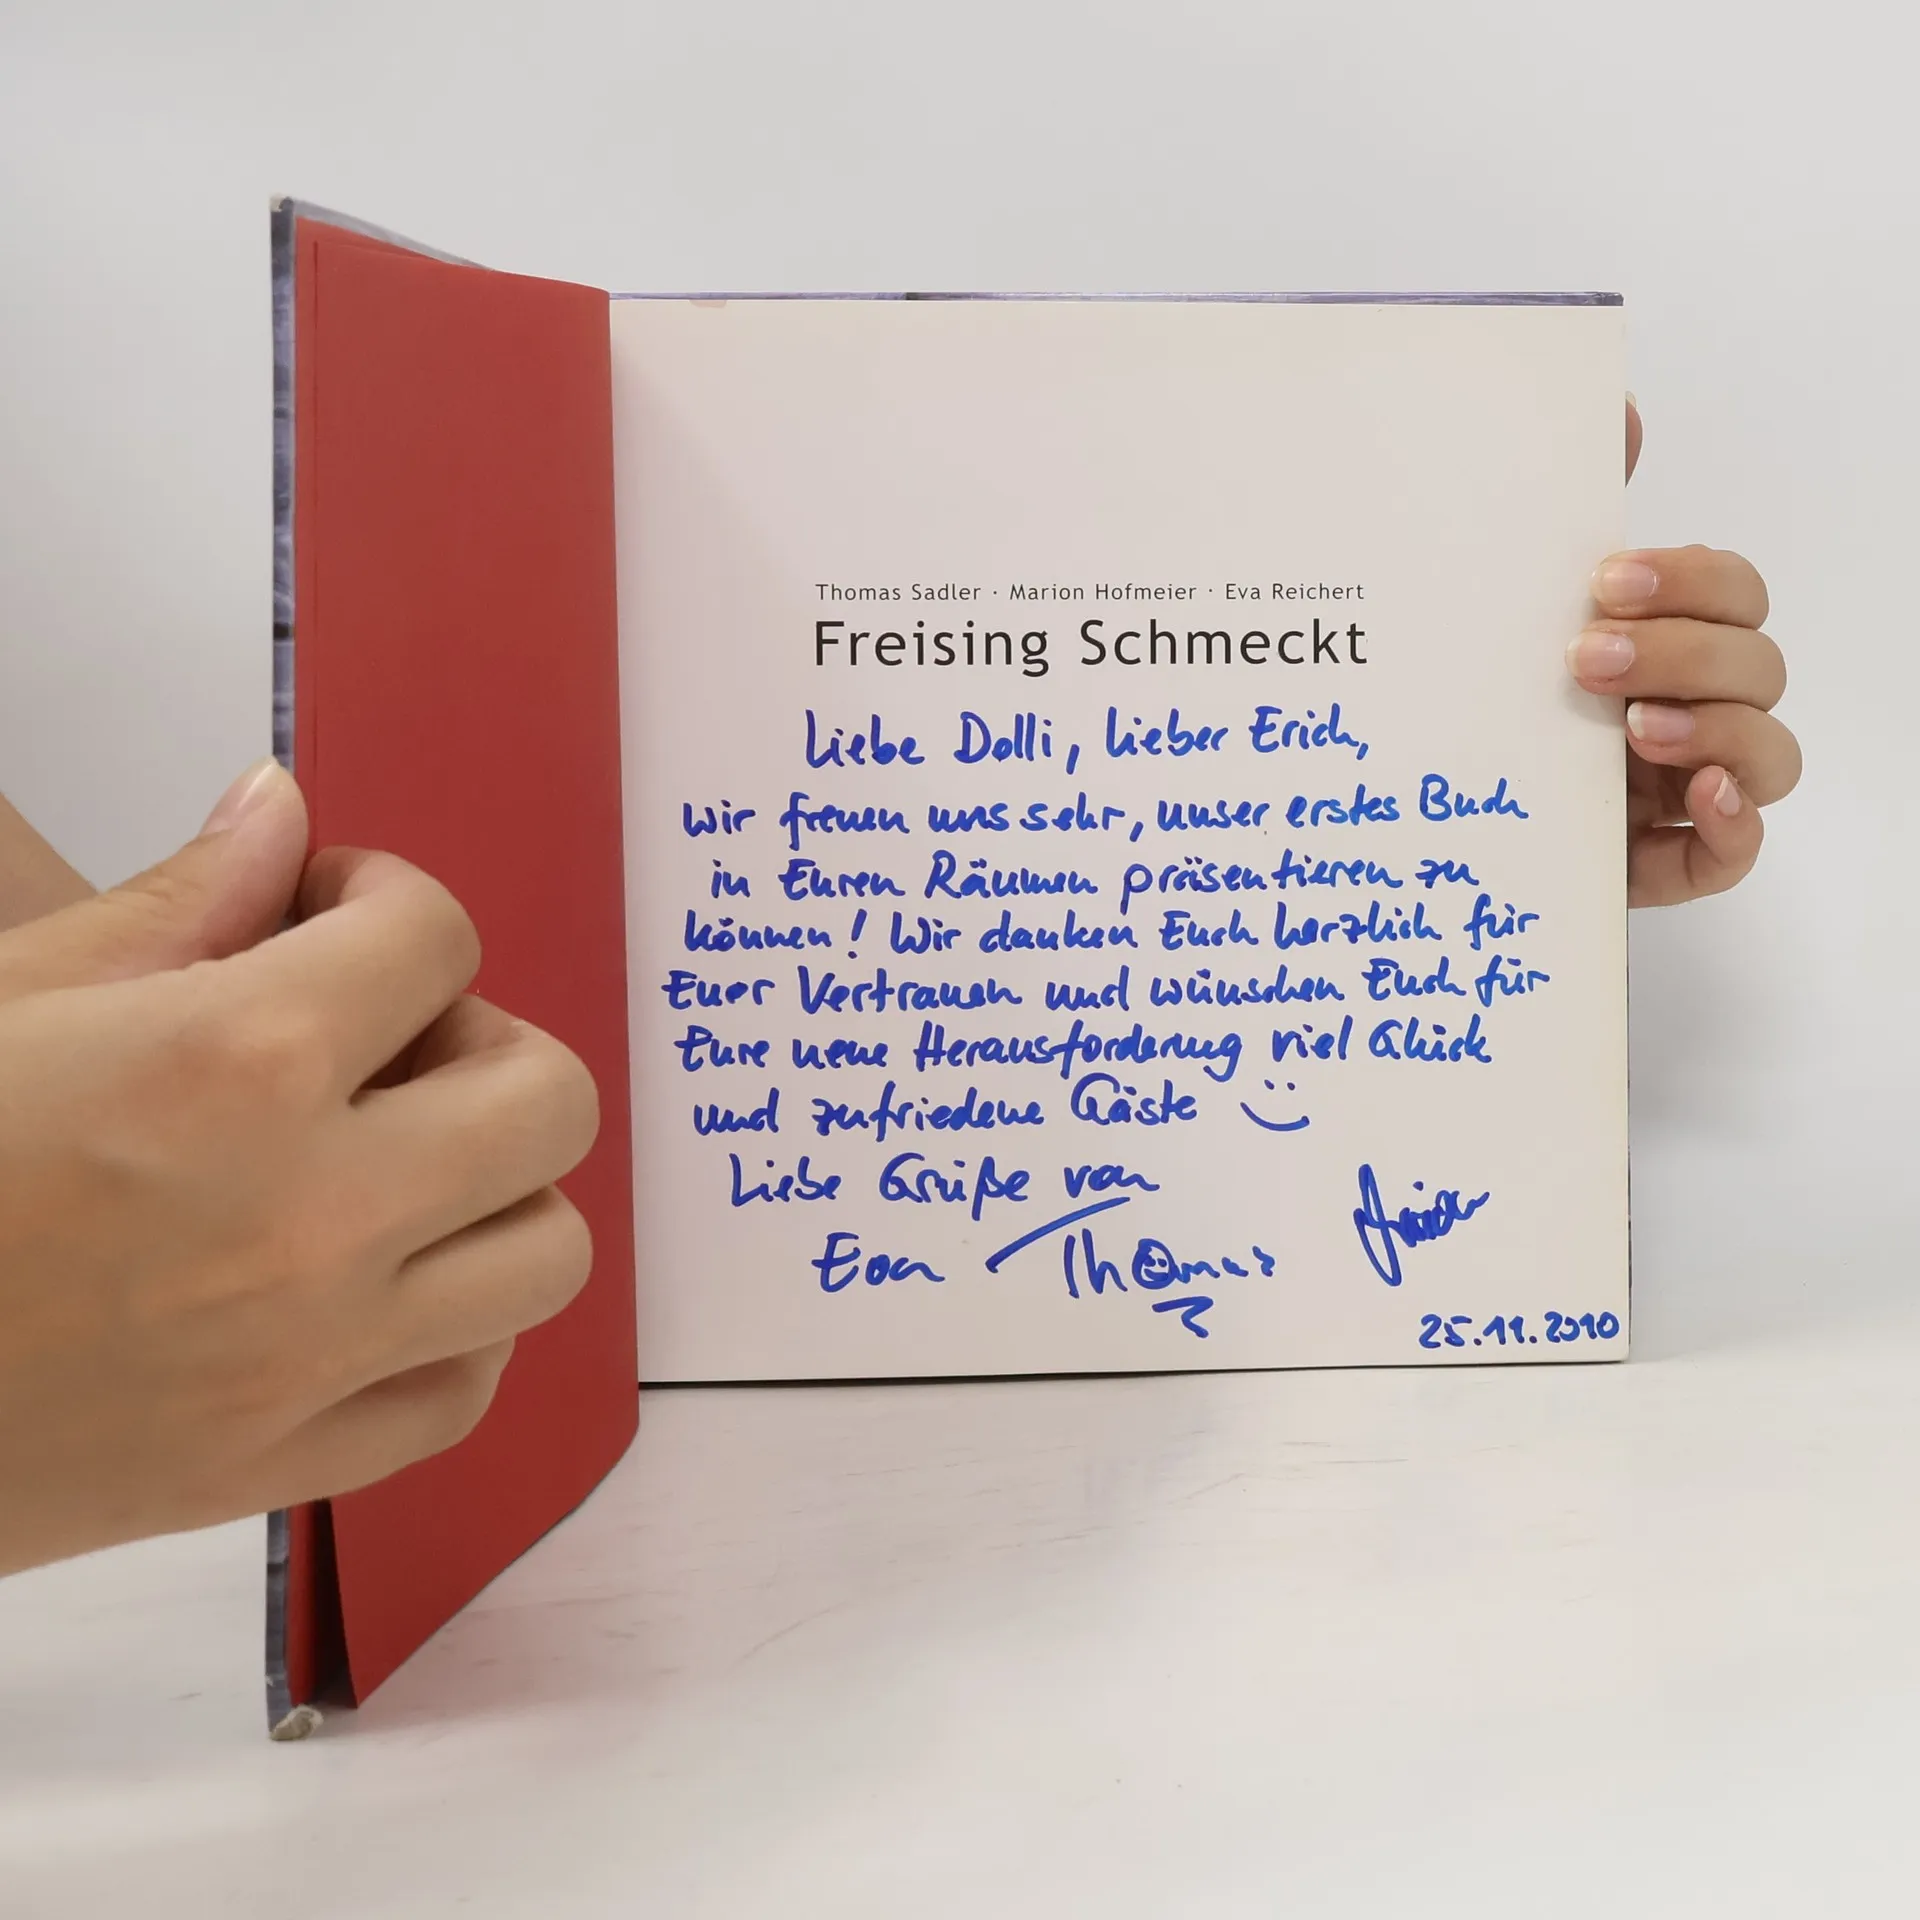 Thomas Sadler · Marion Hofmeier · Eva Reichert
Freising Schmeckt
Liebe Dolli, lieber Erich,
wir freuen uns sehr, unser erstes Buch
in Euren Räumen präsentieren zu
können! Wir danken Euch herzlich für
Euer Vertrauen und wünschen Euch für
Eure neue Herausforderung viel Glück
und zufriedene Gäste
Liebe Grüße von
Eva Thomas
25.11.2010